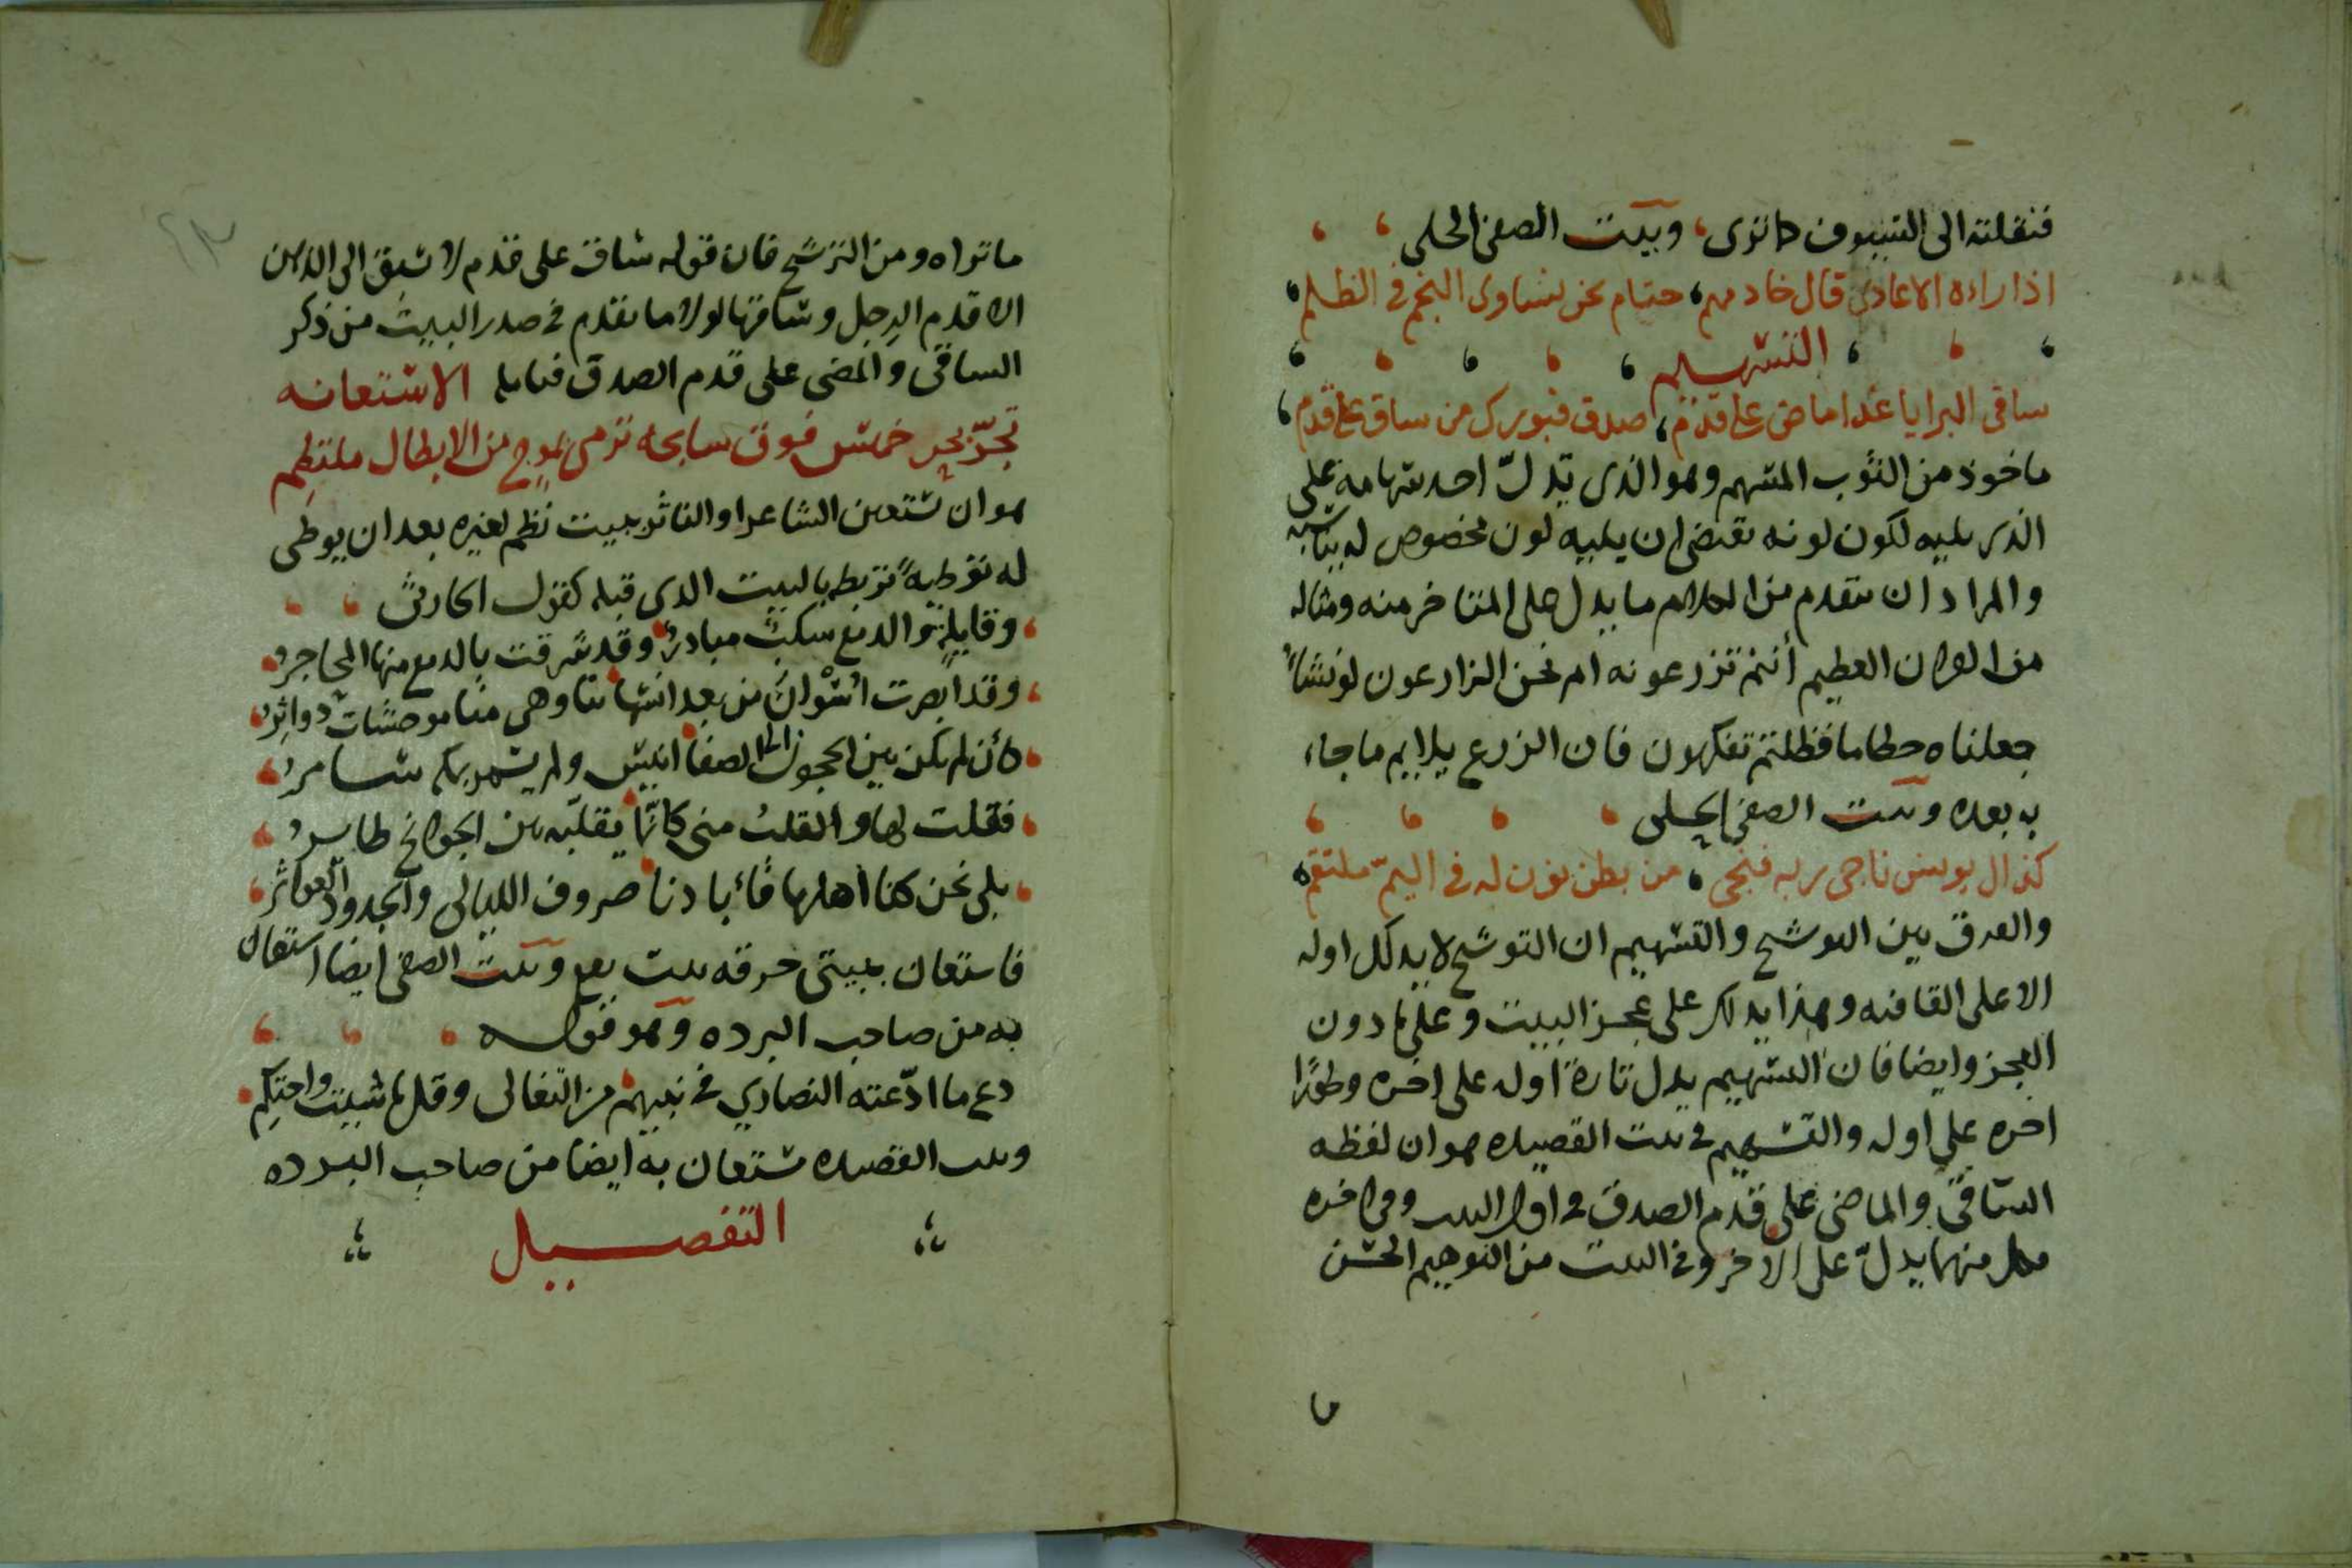 فنقلته الى السيوف كما ترى، وبيت الصفى الحلى
اذا راءه الاعادى قال خادمهم، حتام نحن نساوى النجم فى الظلم،
التسهيم
ساقى البرايا غدا ماض على قدم، صدق فبورك من ساق على قدم
ماخوذ من الثوب المسهم وهو الذى تدل احد سهامه على
الذى يليه لكون لونه يقتضى ان يليه لون مخصوص له
والمراد ان يتقدم من الكلام ما يدل على المتاخر منه ومثاله
من القران العظيم أنتم تزرعونه ام نحن الزارعون لو نشاء
جعلناه حطاما فظلتم تفكهون فان الزرع يلايم ما جاء
به بعده وبيت الصفى الحلى
كذاك يونس ناجى ربه فنجى، من بطن نون له فى اليمّ ملتقم
والفرق بين التوشيح والتسهيم ان التوشيح لا يدلك اوله
الا على القافيه وهذا يدلك على عجز البيت وعلى ما دون
العجز وايضا فان التسهيم يدل تارة اوله على اخره وطورًا
اخره على اوله والتسهيم فى بيت القصيده هو ان لفظه
الساقى والماضى على قدم الصدق فى اول البيت وفى اخره
كل منهما يدلّ على الاخر وفى البيت من التوهيم الحسن
ما
ما تراه ومن الترشيح فان قوله ساق على قدم لا يسبق الى الذهن
الا قدم الرِجل وساقها لولا ما تقدم فى صدر البيت من ذكر
الساقى والمضى على قدم الصدق فتامله الاستعانه
تجرّ بحر خمس فوق سابحه ترمى بموج من الابطال ملتطم
هو ان يستعين الشاعر او الناثر ببيت نظم لغيره بعد ان يوطى
له توطيةً تربطه بالبيت الذى قبله كقول الحارثى
وقايلةٍ والدمع سكبٌ مبادرٌ وقد شرقت بالدمع منها المحاجرُ
وقد ابصرت من بعد انسها بنا وهى منا موحشات دواثرُ
كأن لم يكن بين الحجون الى الصفا انيس ولم يسمر بمكه سامرُ
فقلت لها والقلب منى كانّما يقلّبه بين الجوانح طايرُ
بلى نحن كنا اهلها فأبادنا صروف الليالى والجدود العواثر
فاستعان ببيتى حرقه بيت وبيت الصفى ايضا استعان
به من صاحب البرده وهو قوله
دع ما ادّعته النصارى فى نبيهم من التغالى وقل ما شيت واحتكم
وبيت القصيده مستعان به ايضا من صاحب البرده
التفصيل